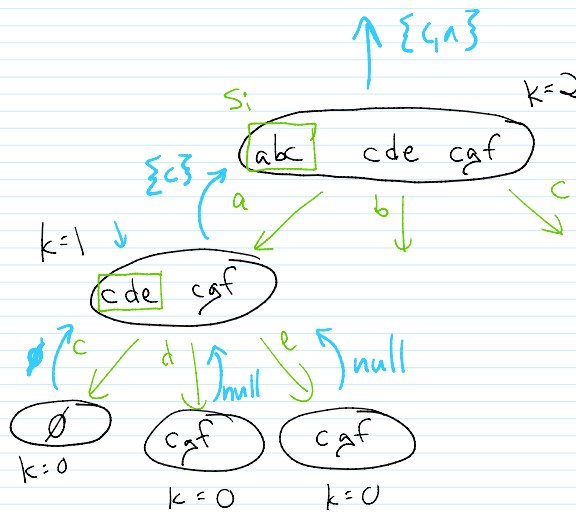 {c,a}
Si
k=2
abc cde cgf
{c}
a b c
k=1
cde cgf
∅ c d null e null
∅ cgf cgf
k=0
k=0 k=0